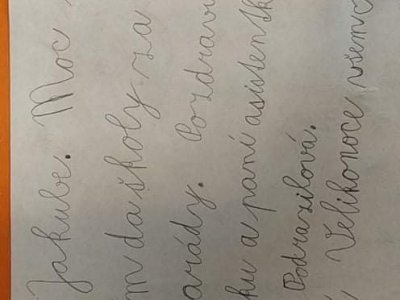 Jakube. Moc
m da školy za
arády. Pozdrav
ku a paní asistentk
Podrazilová.
Velikonoce všem